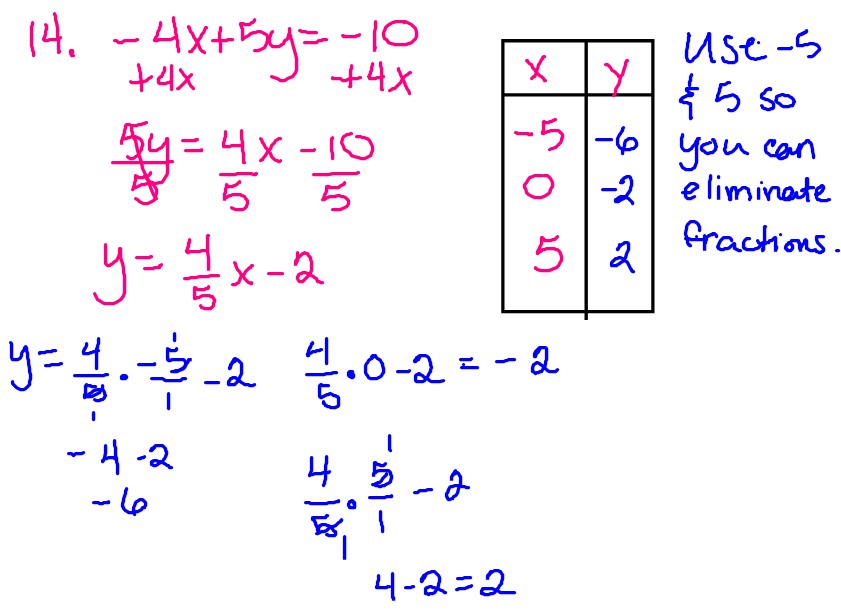 14. -4x+5y=-10
+4x +4x
5y/5 = 4x/5 -10/5
y = 4/5 x - 2
x y
-5 -6
0 -2
5 2
Use -5
& 5 so
you can
eliminate
fractions.
y = 4/5 · -5/1 - 2
1 1
-4 -2
-6
4/5 · 0 - 2 = -2
1
4/5 · 5/1 - 2
1
4-2=2